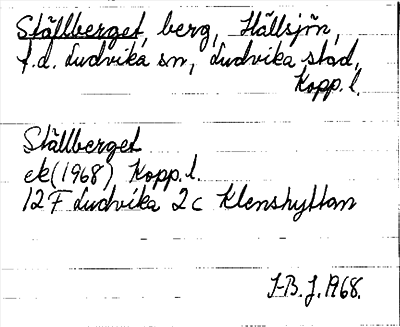 Ställberget, berg, Hällsjön,
f.d. Ludvika sn, Ludvika stad,
Kopp. l.
Ställberget
ek (1968) Kopp. l.
12 F Ludvika 2 c Klenshyttan
I-B. J. 1968.